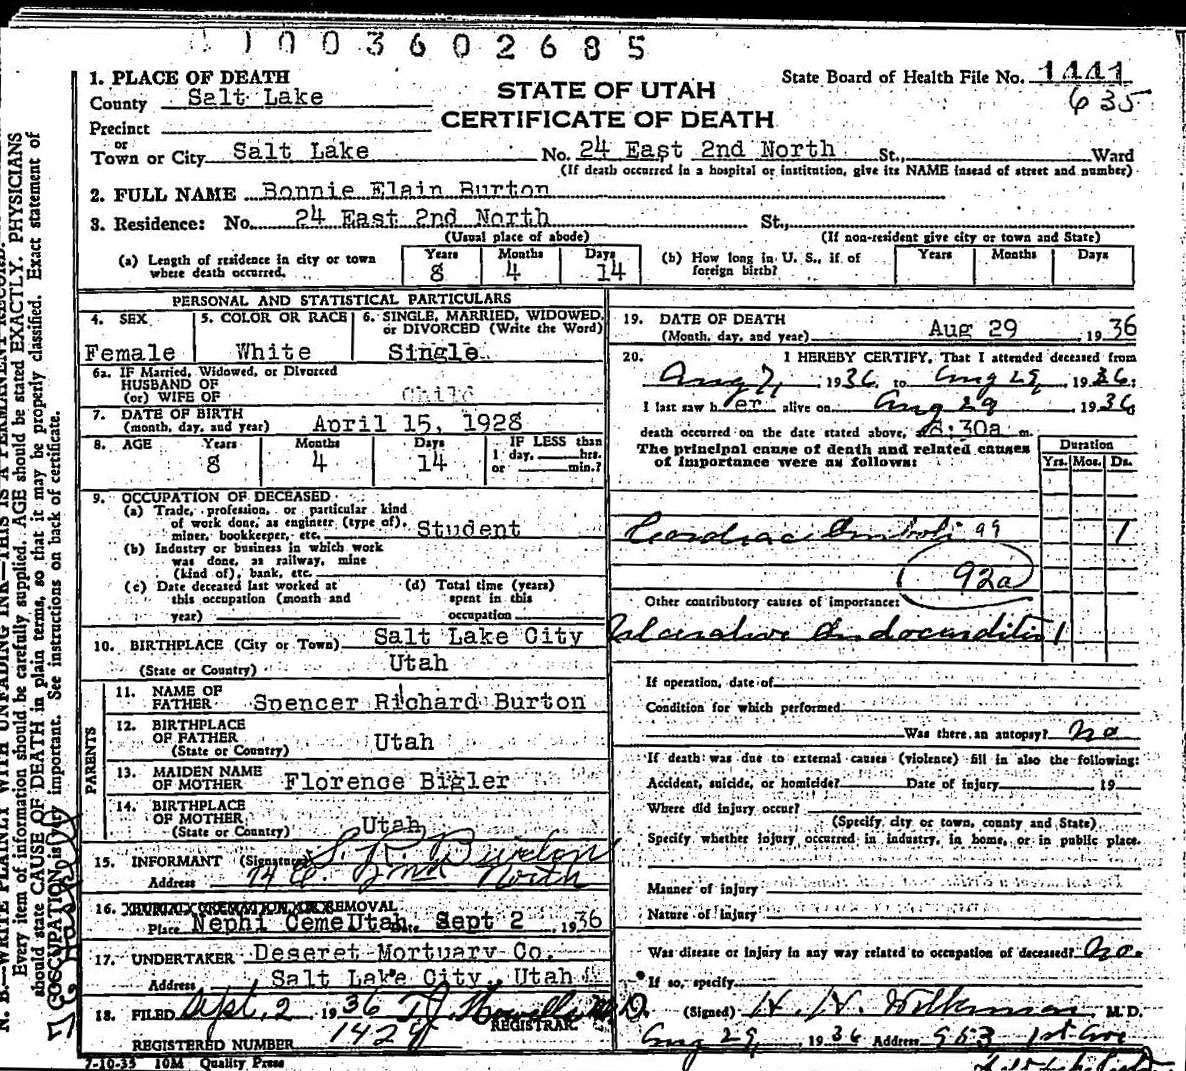 1003602685
1. PLACE OF DEATH
County Salt Lake
Precinct
or
Town or City Salt Lake No. 24 East 2nd North St., Ward
STATE OF UTAH
CERTIFICATE OF DEATH
State Board of Health File No. 1441
635
(If death occurred in a hospital or institution, give its NAME insead of street and number)
2. FULL NAME Bonnie Elain Burton
3. Residence: No. 24 East 2nd North St.,
(Usual place of abode) (If non-resident give city or town and State)
(a) Length of residence in city or town where death occurred. Years 8 Months 4 Days 14
(b) How long in U. S., if of foreign birth? Years Months Days
PERSONAL AND STATISTICAL PARTICULARS
4. SEX
Female
5. COLOR OR RACE
White
6. SINGLE, MARRIED, WIDOWED, or DIVORCED (Write the Word)
Single
6a. IF Married, Widowed, or Divorced
HUSBAND OF
(or) WIFE OF Child
7. DATE OF BIRTH
(month, day, and year) April 15, 1928
8. AGE Years 8 Months 4 Days 14
IF LESS than
1 day, hrs.
or min.?
9. OCCUPATION OF DECEASED
(a) Trade, profession, or particular kind
of work done, as engineer (type of),
miner, bookkeeper, etc. Student
(b) Industry or business in which work
was done, as railway, mine
(kind of), bank, etc.
(c) Date deceased last worked at
this occupation (month and
year)
(d) Total time (years)
spent in this
occupation
10. BIRTHPLACE (City or Town) Salt Lake City
(State or Country) Utah
PARENTS
11. NAME OF
FATHER Spencer Richard Burton
12. BIRTHPLACE
OF FATHER
(State or Country) Utah
13. MAIDEN NAME
OF MOTHER Florence Bigler
14. BIRTHPLACE
OF MOTHER
(State or Country) Utah
15. INFORMANT (Signature) S. R. Burton
Address 2nd North
16. BURIAL, CREMATION, OR REMOVAL
Place Nephi Ceme Utah Date Sept 2 1936
17. UNDERTAKER Deseret Mortuary Co.
Address Salt Lake City, Utah
18. FILED Sept. 2 1936 M.D.
REGISTRAR
REGISTERED NUMBER 1424
7-10-35 10M Quality Press
19. DATE OF DEATH
(Month, day, and year) Aug 29 1936
20. I HEREBY CERTIFY, That I attended deceased from
Aug 7, 1936 to Aug 29, 1936;
I last saw her alive on Aug 29 1936
death occurred on the date stated above, at 8:30a m.
The principal cause of death and related causes
of importance were as follows:
Duration
Yrs. Mos. Ds.
Cardiac Emboli 99 1
92a
Other contributory causes of importance:
Ulcerative Endocarditis 1
If operation, date of
Condition for which performed
Was there an autopsy? No
If death was due to external causes (violence) fill in also the following:
Accident, suicide, or homicide? Date of injury 19
Where did injury occur?
(Specify city or town, county and State)
Specify whether injury occurred in industry, in home, or in public place.
Manner of injury
Nature of injury
Was disease or injury in any way related to occupation of deceased? No.
If so, specify
(Signed) H. H. Wilkinson, M. D.
Aug 29, 1936 Address 953 1st Ave
N. B.—WRITE PLAINLY WITH UNFADING INK—THIS IS A PERMANENT RECORD.
Every item of information should be carefully supplied. AGE should be stated EXACTLY. PHYSICIANS
should state CAUSE OF DEATH in plain terms, so that it may be properly classified. Exact statement of
OCCUPATION is very important. See instructions on back of certificate.